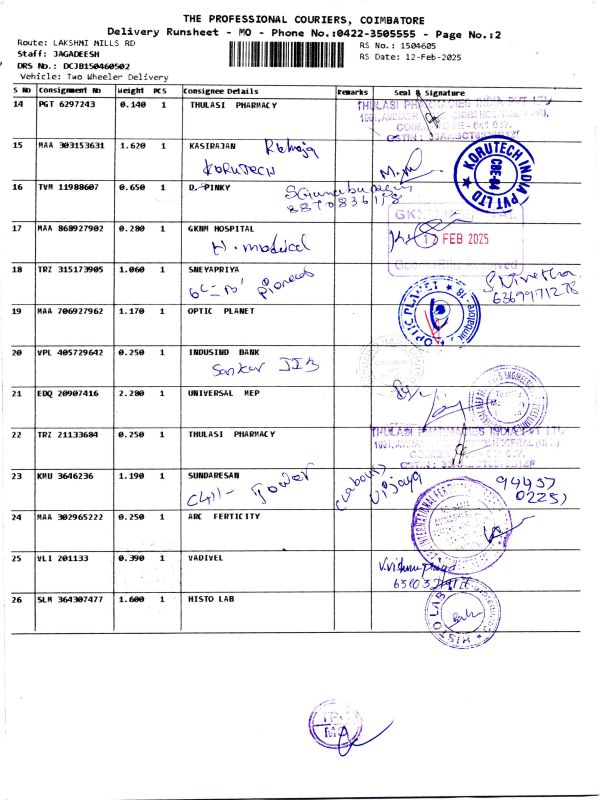 THE PROFESSIONAL COURIERS, COIMBATORE
Delivery Runsheet - MO - Phone No.:0422-3505555 - Page No.:2
Route: LAKSHMI MILLS RD
RS No.: 1504605
Staff: JAGADEESH
RS Date: 12-Feb-2025
DRS No.: DCJB150460502
Vehicle: Two Wheeler Delivery
S No Consignment No Weight PCS Consignee Details Remarks Seal & Signature
14 PGT 6297243 0.140 1 THULASI PHARMACY
THULASI PHARMACIES INDIA PVT LTD
15 MAA 303153631 1.620 1 KASIRAJAN
KORUTECH
KORUTECH INDIA PVT LTD
CBE-44
16 TVM 11988607 0.650 1 D. PINKY
8870836118
17 MAA 868927902 0.280 1 GKNM HOSPITAL
H. medical
FEB 2025
18 TRZ 315173905 1.060 1 SNEYAPRIYA
6369971278
19 MAA 706927962 1.170 1 OPTIC PLANET
OPTIC PLANET
20 VPL 405729642 0.250 1 INDUSIND BANK
Sankar
21 EDQ 20907416 2.280 1 UNIVERSAL MEP
22 TRZ 21133684 0.250 1 THULASI PHARMACY
THULASI PHARMACIES INDIA PVT LTD
23 KMU 3646236 1.190 1 SUNDARESAN
Tower
Vijaya
94437
02251
24 MAA 302965222 0.250 1 ARC FERTICITY
25 VLI 201133 0.390 1 VADIVEL
26 SLM 364307477 1.600 1 HISTO LAB
HISTO LAB